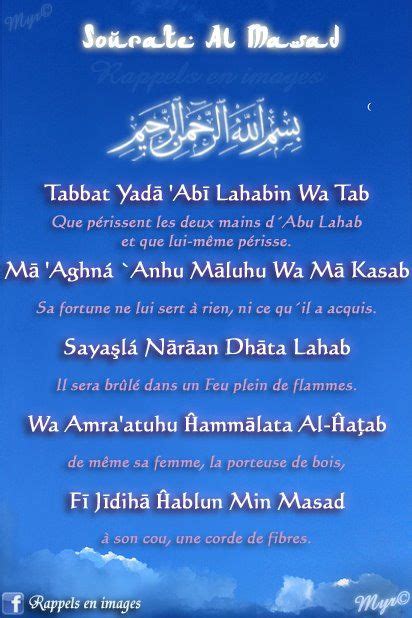 Myr©
Sourate Al Masad
Rappels en images
بسم الله الرحمن الرحيم
Tabbat Yadā 'Abī Lahabin Wa Tab
Que périssent les deux mains d´Abu Lahab
et que lui-même périsse.
Mā 'Aghná `Anhu Māluhu Wa Mā Kasab
Sa fortune ne lui sert à rien, ni ce qu´il a acquis.
Sayaşlá Nārāan Dhāta Lahab
Il sera brûlé dans un Feu plein de flammes.
Wa Amra'atuhu Ĥammālata Al-Ĥaţab
de même sa femme, la porteuse de bois,
Fī Jīdihā Ĥablun Min Masad
à son cou, une corde de fibres.
f Rappels en images
Myr©